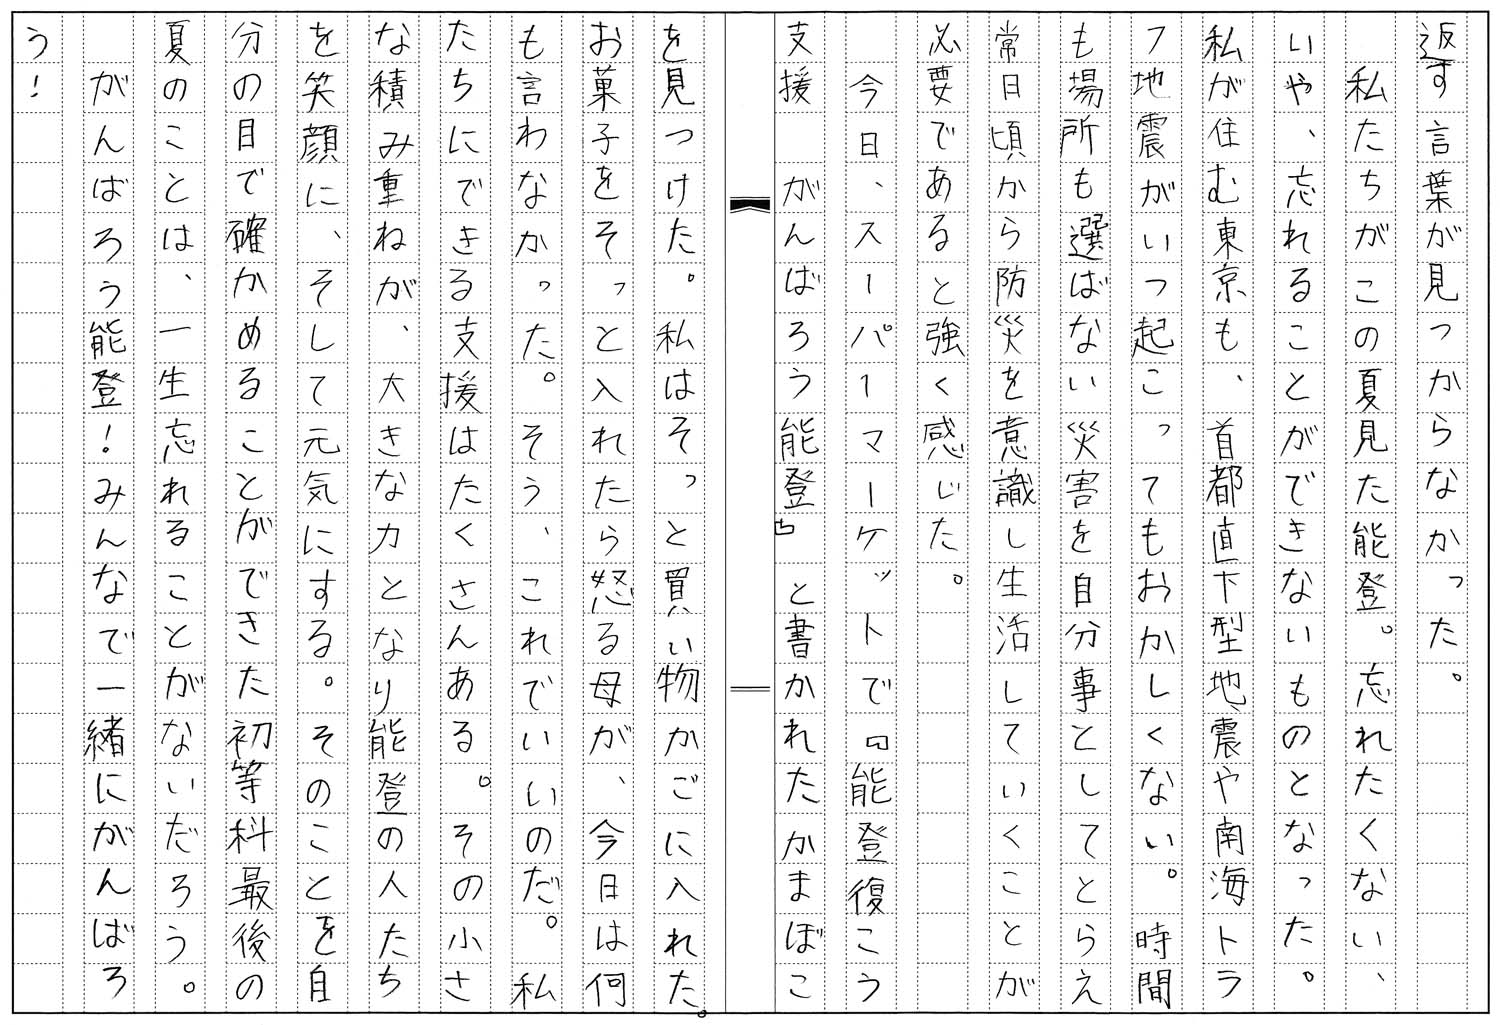 返す言葉が見つからなかった。
私たちがこの夏見た能登。忘れたくない、
いや、忘れることができないものとなった。
私が住む東京も、首都直下型地震や南海トラ
フ地震がいつ起こってもおかしくない。時間
も場所も選ばない災害を自分事としてとらえ
常日頃から防災を意識し生活していくことが
必要であると強く感じた。
今日、スーパーマーケットで『能登復こう
支援　がんばろう能登』と書かれたかまぼこ
を見つけた。私はそっと買い物かごに入れた。
お菓子をそっと入れたら怒る母が、今日は何
も言わなかった。そう、これでいいのだ。私
たちにできる支援はたくさんある。その小さ
な積み重ねが、大きな力となり能登の人たち
を笑顔に、そして元気にする。そのことを自
分の目で確かめることができた初等科最後の
夏のことは、一生忘れることがないだろう。
がんばろう能登！みんなで一緒にがんばろ
う！